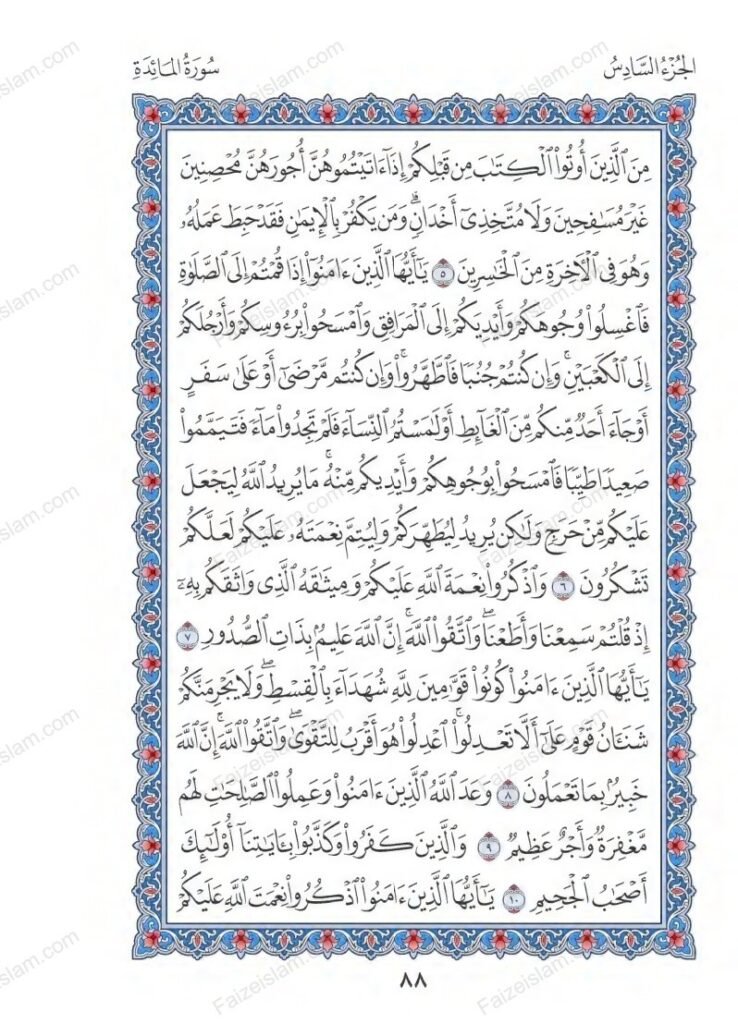 الجُزْءُ السَّادِسُ
سُورَةُ المَائِدَةِ
مِنَ ٱلَّذِينَ أُوتُوا۟ ٱلْكِتَٰبَ مِن قَبْلِكُمْ إِذَآ ءَاتَيْتُمُوهُنَّ أُجُورَهُنَّ مُحْصِنِينَ
غَيْرَ مُسَٰفِحِينَ وَلَا مُتَّخِذِىٓ أَخْدَانٍۢ ۗ وَمَن يَكْفُرْ بِٱلْإِيمَٰنِ فَقَدْ حَبِطَ عَمَلُهُۥ
وَهُوَ فِى ٱلْءَاخِرَةِ مِنَ ٱلْخَٰسِرِينَ ٥ يَٰٓأَيُّهَا ٱلَّذِينَ ءَامَنُوٓا۟ إِذَا قُمْتُمْ إِلَى ٱلصَّلَوٰةِ
فَٱغْسِلُوا۟ وُجُوهَكُمْ وَأَيْدِيَكُمْ إِلَى ٱلْمَرَافِقِ وَٱمْسَحُوا۟ بِرُءُوسِكُمْ وَأَرْجُلَكُمْ
إِلَى ٱلْكَعْبَيْنِ ۚ وَإِن كُنتُمْ جُنُبًۭا فَٱطَّهَّرُوا۟ ۚ وَإِن كُنتُم مَّرْضَىٰٓ أَوْ عَلَىٰ سَفَرٍ
أَوْ جَآءَ أَحَدٌۭ مِّنكُم مِّنَ ٱلْغَآئِطِ أَوْ لَٰمَسْتُمُ ٱلنِّسَآءَ فَلَمْ تَجِدُوا۟ مَآءًۭ فَتَيَمَّمُوا۟
صَعِيدًۭا طَيِّبًۭا فَٱمْسَحُوا۟ بِوُجُوهِكُمْ وَأَيْدِيكُم مِّنْهُ ۚ مَا يُرِيدُ ٱللَّهُ لِيَجْعَلَ
عَلَيْكُم مِّنْ حَرَجٍۢ وَلَٰكِن يُرِيدُ لِيُطَهِّرَكُمْ وَلِيُتِمَّ نِعْمَتَهُۥ عَلَيْكُمْ لَعَلَّكُمْ
تَشْكُرُونَ ٦ وَٱذْكُرُوا۟ نِعْمَةَ ٱللَّهِ عَلَيْكُمْ وَمِيثَٰقَهُ ٱلَّذِى وَاثَقَكُم بِهِۦٓ
إِذْ قُلْتُمْ سَمِعْنَا وَأَطَعْنَا ۖ وَٱتَّقُوا۟ ٱللَّهَ ۚ إِنَّ ٱللَّهَ عَلِيمٌۢ بِذَاتِ ٱلصُّدُورِ ٧
يَٰٓأَيُّهَا ٱلَّذِينَ ءَامَنُوا۟ كُونُوا۟ قَوَّٰمِينَ لِلَّهِ شُهَدَآءَ بِٱلْقِسْطِ ۖ وَلَا يَجْرِمَنَّكُمْ
شَنَـَٔانُ قَوْمٍ عَلَىٰٓ أَلَّا تَعْدِلُوا۟ ۚ ٱعْدِلُوا۟ هُوَ أَقْرَبُ لِلتَّقْوَىٰ ۖ وَٱتَّقُوا۟ ٱللَّهَ ۚ إِنَّ ٱللَّهَ
خَبِيرٌۢ بِمَا تَعْمَلُونَ ٨ وَعَدَ ٱللَّهُ ٱلَّذِينَ ءَامَنُوا۟ وَعَمِلُوا۟ ٱلصَّٰلِحَٰتِ ۙ لَهُم
مَّغْفِرَةٌۭ وَأَجْرٌ عَظِيمٌۭ ٩ وَٱلَّذِينَ كَفَرُوا۟ وَكَذَّبُوا۟ بِـَٔايَٰتِنَآ أُو۟لَٰٓئِكَ
أَصْحَٰبُ ٱلْجَحِيمِ ١٠ يَٰٓأَيُّهَا ٱلَّذِينَ ءَامَنُوا۟ ٱذْكُرُوا۟ نِعْمَتَ ٱللَّهِ عَلَيْكُمْ
٨٨
Faizeislam.com